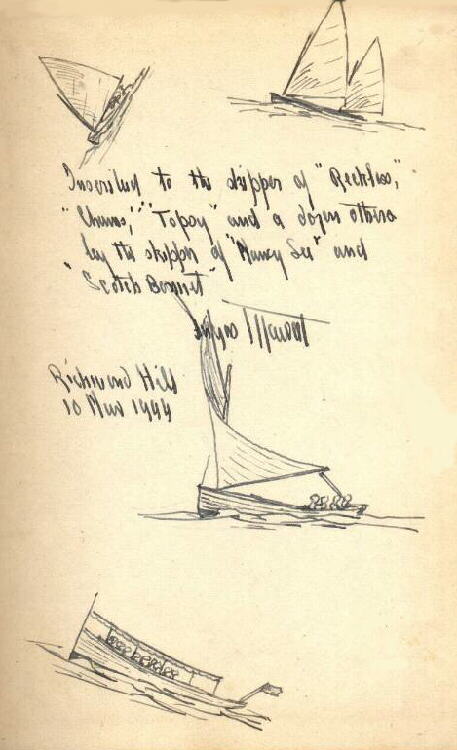 Inscribed to the skipper of "Reckless,"
"Chums," "Topsy" and a dozen others
by the skipper of "Nancy Lee" and
"Scotch Bonnet"
Richmond Hill
10 Nov 1944